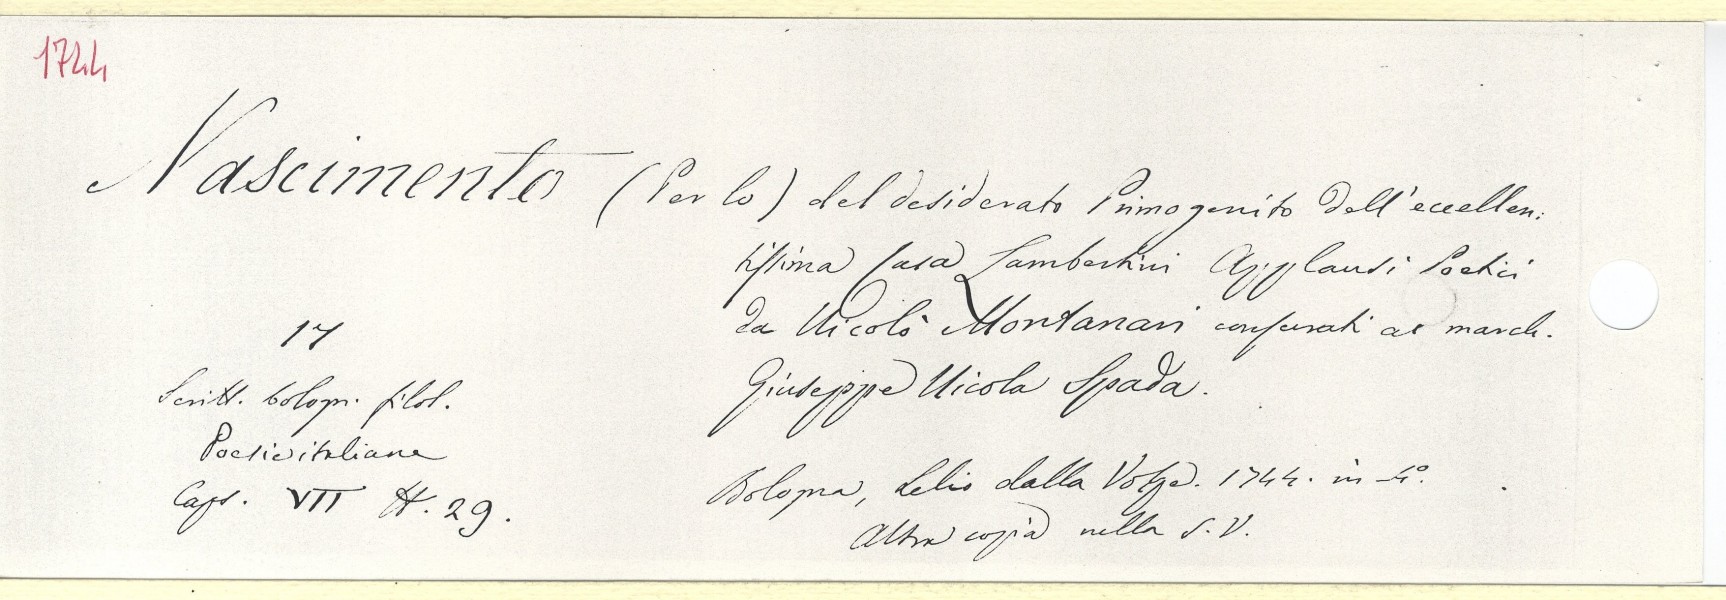 1744
Nascimento (Per lo) del desiderato Primogenito dell'eccellen:
tissima Casa Lambertini Applausi Poetici
da Nicolò Montanari consecrati al march.
Giuseppe Nicola Spada.
17
Scritt. bologn. filol.
Poesie italiane
Caps. VII N. 29.
Bologna, Lelio dalla Volpe. 1744. in 4.º
Altra copia nella S. V.